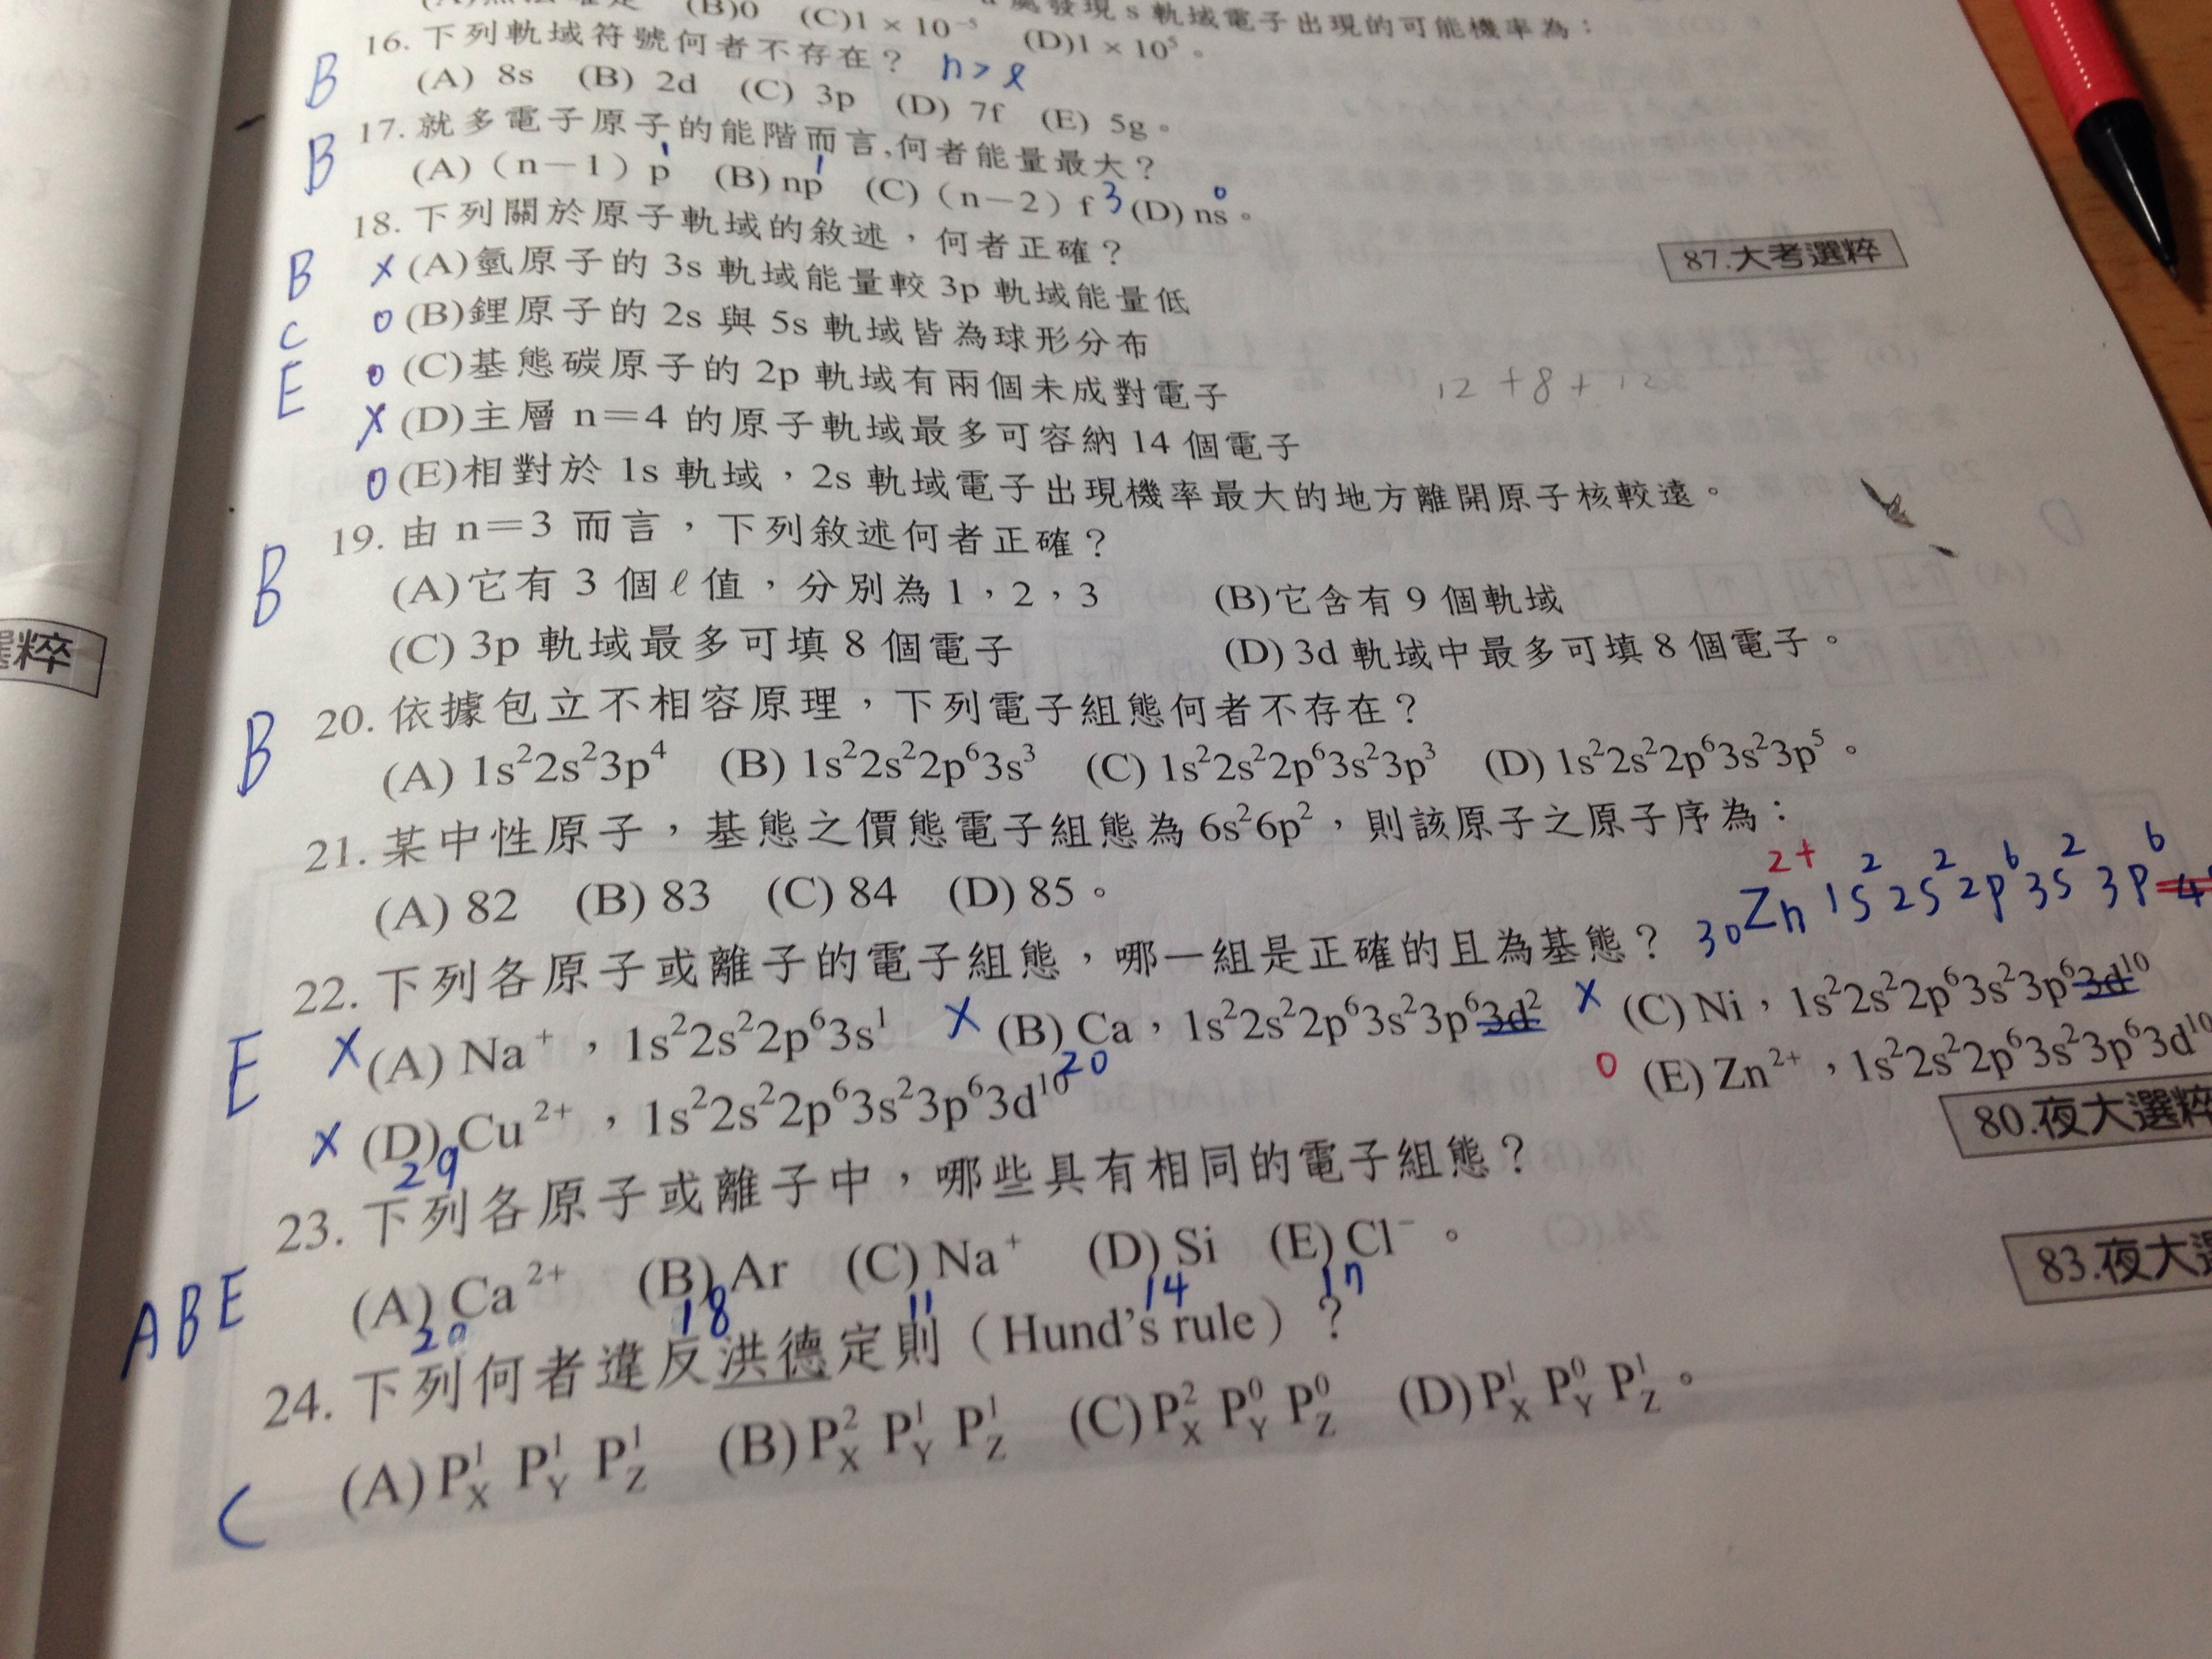 (B)0 (C)1 × 10⁻⁵ (D)1 × 10⁵。
處發現 s 軌域電子出現的可能機率為：
16. 下列軌域符號何者不存在？ n > ℓ
B (A) 8s (B) 2d (C) 3p (D) 7f (E) 5g。
17. 就多電子原子的能階而言,何者能量最大？
B (A)（n－1）p 1 (B) np 1 (C)（n－2）f 3 (D) ns 0。
18. 下列關於原子軌域的敘述，何者正確？
87.大考選粹
B × (A)氫原子的 3s 軌域能量較 3p 軌域能量低
C o (B)鋰原子的 2s 與 5s 軌域皆為球形分布
E o (C)基態碳原子的 2p 軌域有兩個未成對電子
12 + 8 + 12
× (D)主層 n＝4 的原子軌域最多可容納 14 個電子
o (E)相對於 1s 軌域，2s 軌域電子出現機率最大的地方離開原子核較遠。
19. 由 n＝3 而言，下列敘述何者正確？
B (A)它有 3 個 ℓ 值，分別為 1，2，3 (B)它含有 9 個軌域
(C) 3p 軌域最多可填 8 個電子 (D) 3d 軌域中最多可填 8 個電子。
選粹
20. 依據包立不相容原理，下列電子組態何者不存在？
B (A) 1s²2s²3p⁴ (B) 1s²2s²2p⁶3s³ (C) 1s²2s²2p⁶3s²3p³ (D) 1s²2s²2p⁶3s²3p⁵。
21. 某中性原子，基態之價態電子組態為 6s²6p²，則該原子之原子序為：
(A) 82 (B) 83 (C) 84 (D) 85。
30Zn²⁺ 1s²2s²2p⁶3s²3p⁶4
22. 下列各原子或離子的電子組態，哪一組是正確的且為基態？
E × (A) Na⁺，1s²2s²2p⁶3s¹ × (B) Ca，1s²2s²2p⁶3s²3p⁶3d² × (C) Ni，1s²2s²2p⁶3s²3p⁶3d¹⁰
20
× (D) Cu²⁺，1s²2s²2p⁶3s²3p⁶3d¹⁰ o (E) Zn²⁺，1s²2s²2p⁶3s²3p⁶3d¹⁰
29
80.夜大選粹
23. 下列各原子或離子中，哪些具有相同的電子組態？
ABE (A) Ca²⁺ (B) Ar (C) Na⁺ (D) Si (E) Cl⁻。
20 18 11 14 17
83.夜大
24. 下列何者違反洪德定則（Hund's rule）？
C (A) P¹X P¹Y P¹Z (B) P²X P¹Y P¹Z (C) P²X P⁰Y P⁰Z (D) P¹X P⁰Y P¹Z。